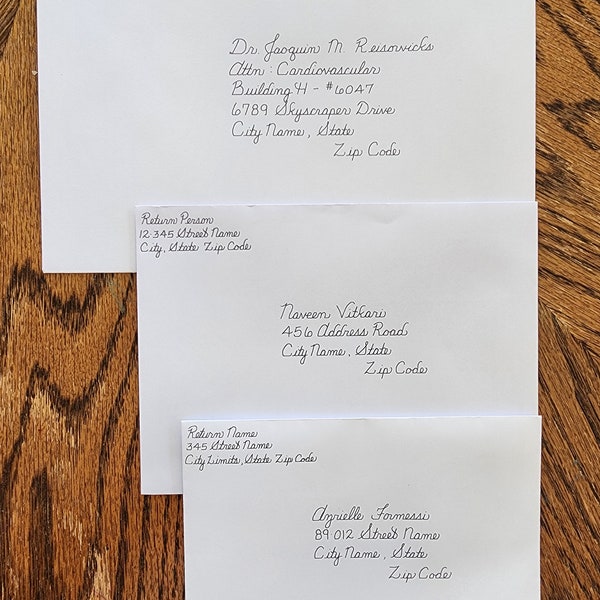 Dr. Jaoquin M. Reisorvicks
Attn: Cardiovascular
Building H - #6047
6789 Skyscraper Drive
City Name, State
Zip Code
Return Person
12345 Street Name
City, State Zip Code
Naveen Vitkari
456 Address Road
City Name, State
Zip Code
Return Name
345 Street Name
City Limits, State Zip Code
Azrielle Formessi
89012 Street Name
City Name, State
Zip Code